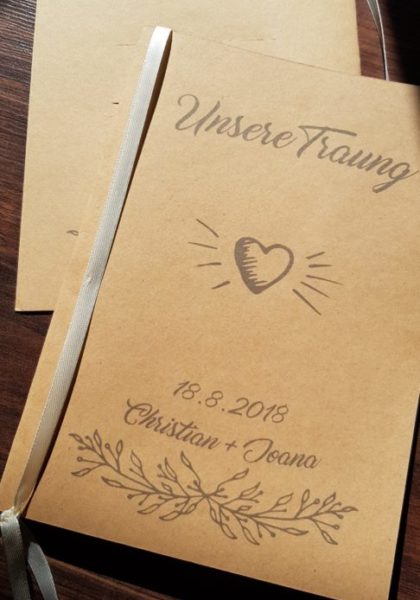 Unsere Traung
18.8.2018
Christian + Joana